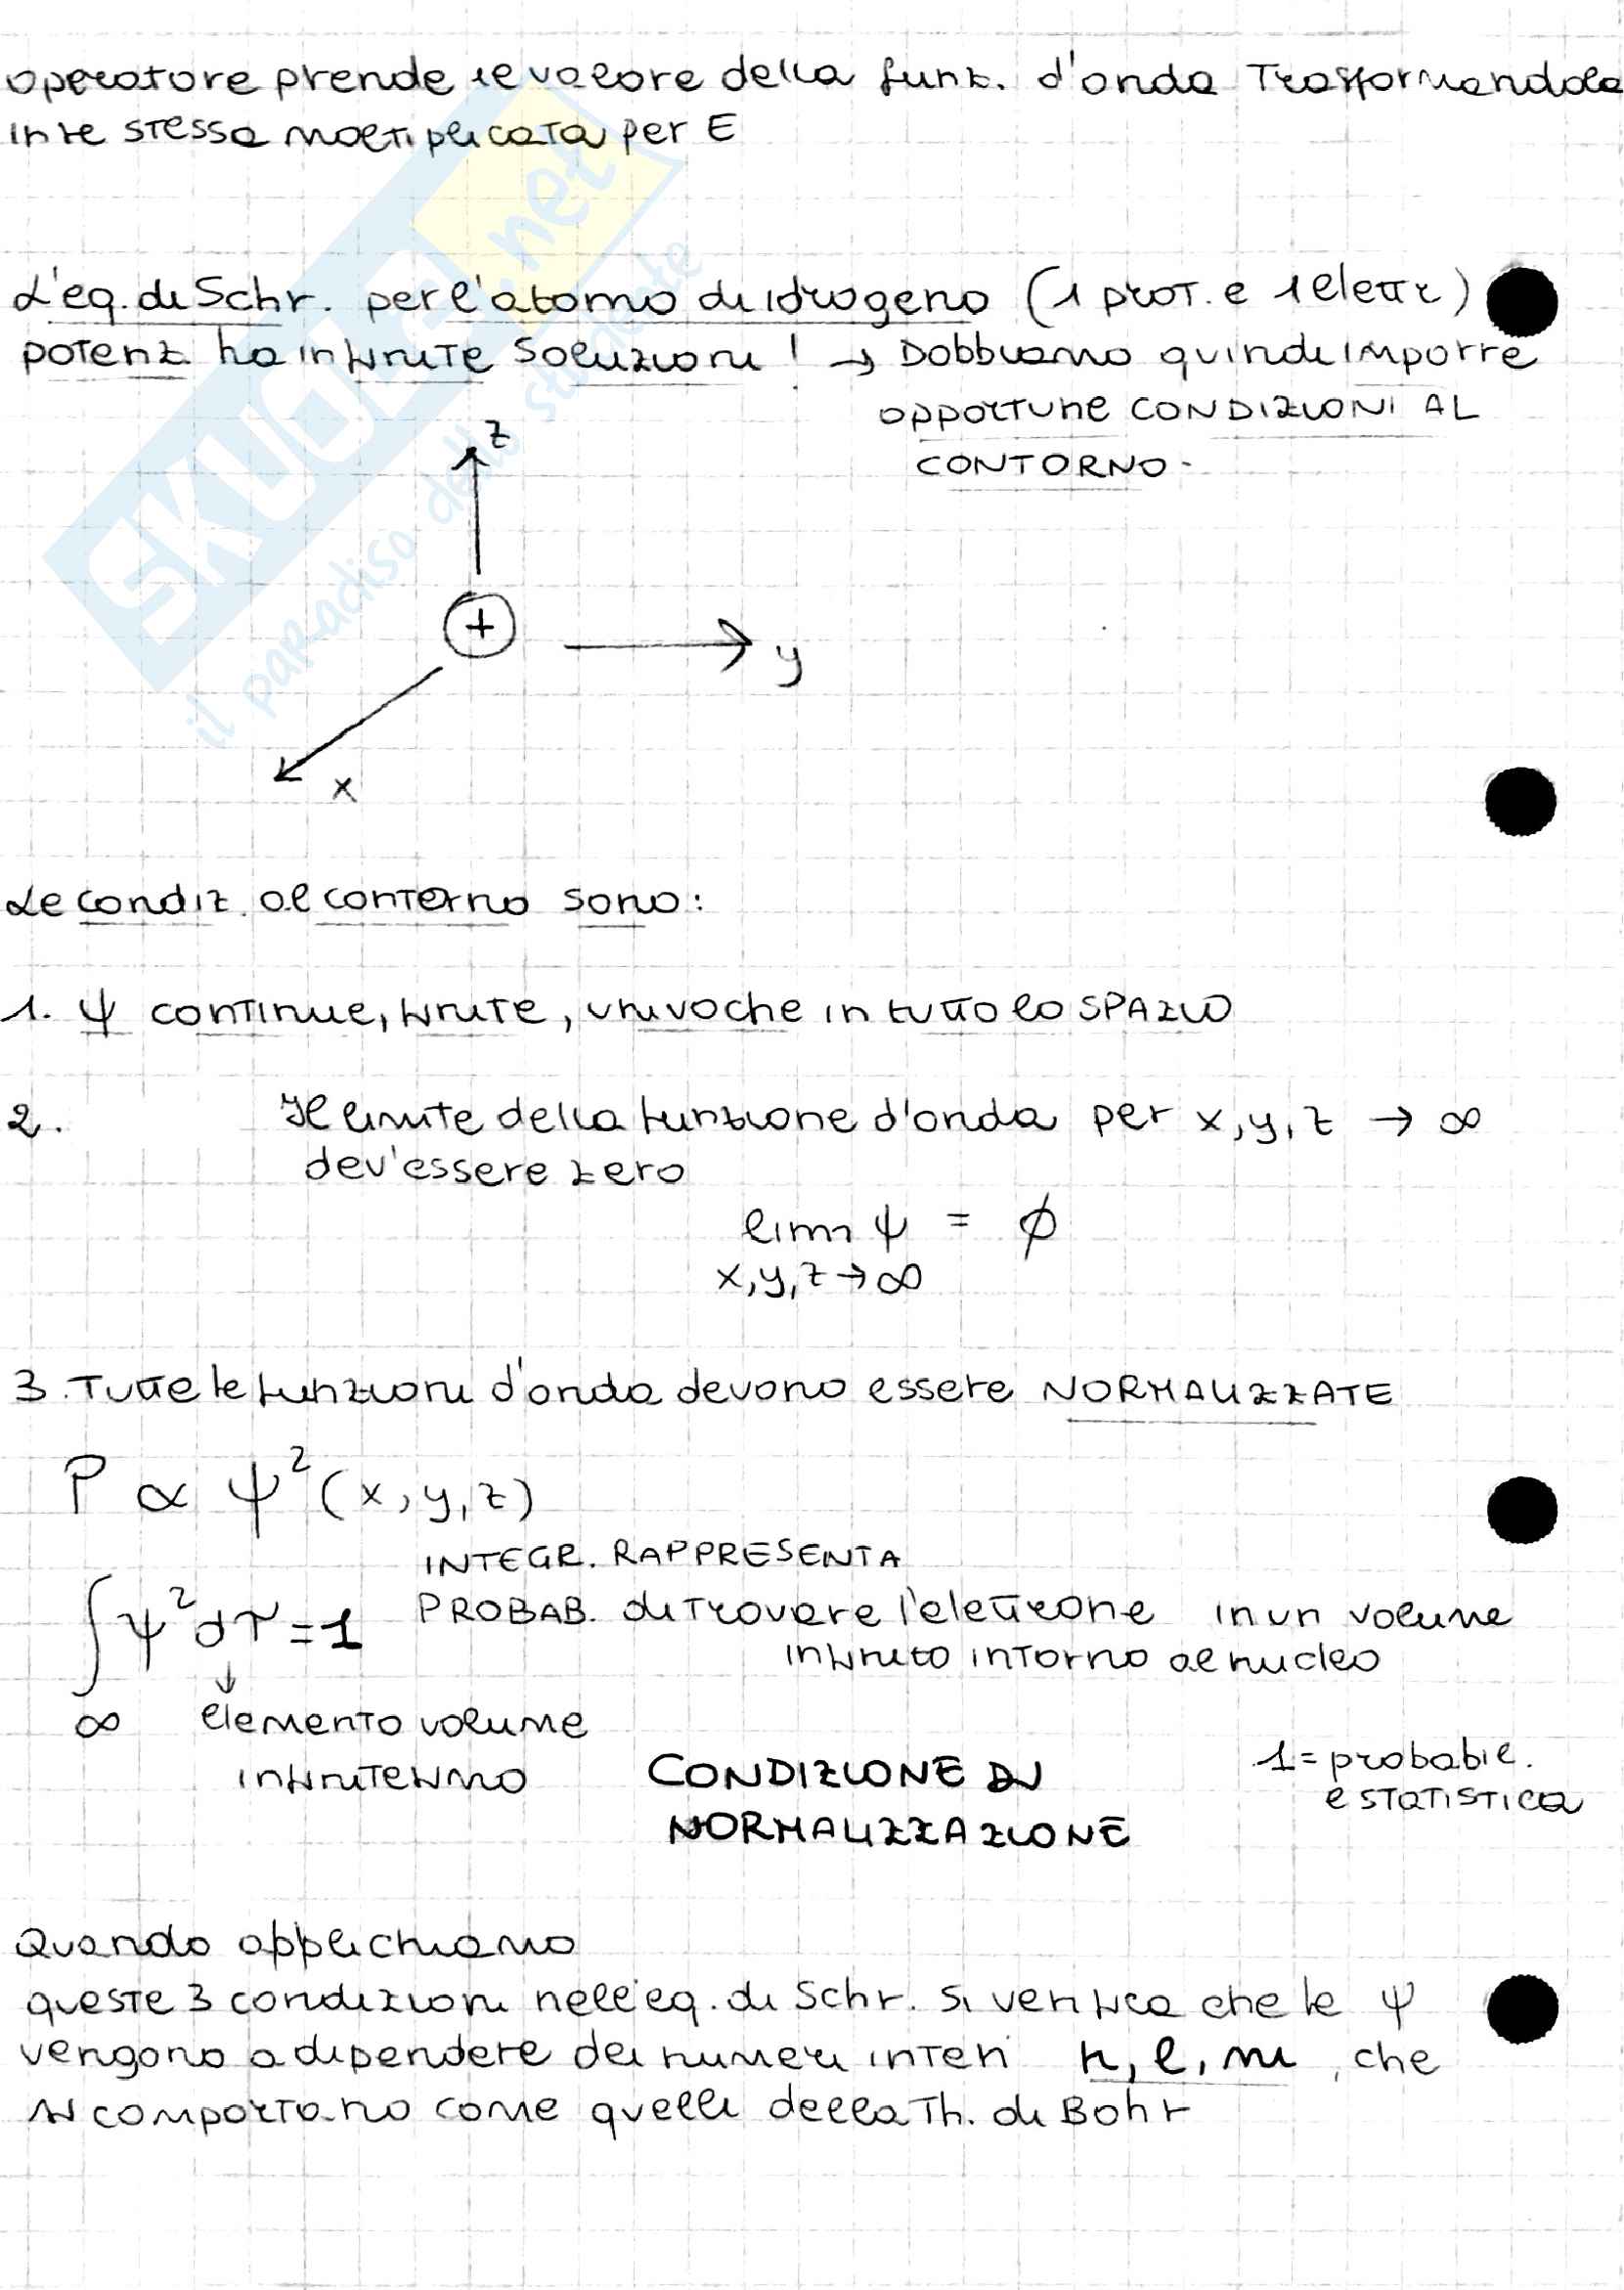 operatore prende le valore della funz. d'onda Trasformandola
in se stessa moltiplicata per E
L'eq. di Schr. per l'atomo di idrogeno (1 prot. e 1 elettr)
potenz ha infinite soluzioni! → Dobbiamo quindi imporre
opportune CONDIZIONI AL
CONTORNO.
z
+
y
x
Le condiz. al contorno sono:
1. ψ continue, finite, univoche in tutto lo SPAZIO
2. Il limite della funzione d'onda per x, y, z → ∞
dev'essere zero
lim ψ = ϕ
x, y, z → ∞
3. Tutte le funzioni d'onda devono essere NORMALIZZATE
P ∝ ψ² (x, y, z)
INTEGR. RAPPRESENTA
∫ ψ² dτ = 1 PROBAB. di trovare l'elettrone in un volume
infinito intorno al nucleo
∞ elemento volume
infinitesimo
CONDIZIONE DI
NORMALIZZAZIONE
1 = probabil.
e statistica
Quando applichiamo
queste 3 condizioni nell'eq. di Schr. si verifica che le ψ
vengono a dipendere dei numeri interi n, l, m, che
si comportano come quelli della Th. di Bohr
SKUOLA.net
il paradiso dello studente